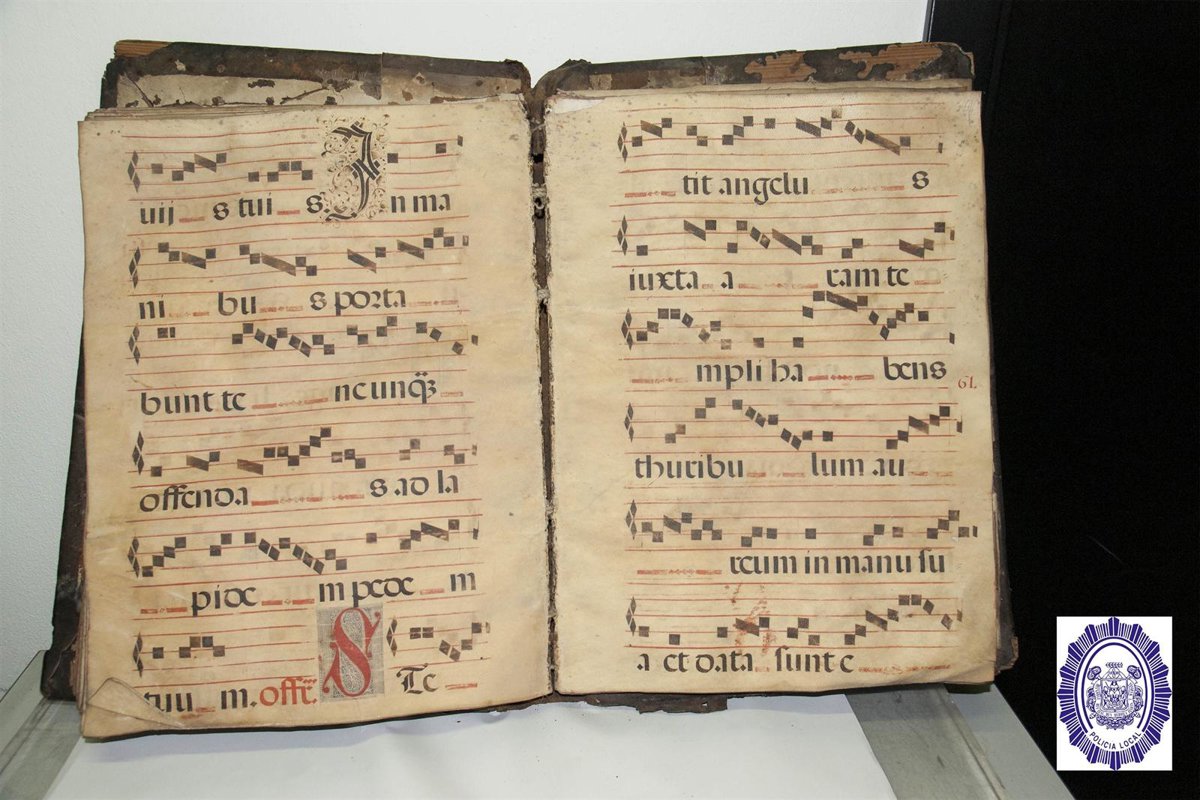 uij s tui s In ma
ni bu s porta
bunt te ne unq̃ʒ
offenda s ad la
pide m pede m
tuu m. offr̃. S Te
tit angelu s
iuxta a ram te
mpli ha bens
61.
thuribu lum au
reum in manu su
a et data sunt e
POLICIA LOCAL